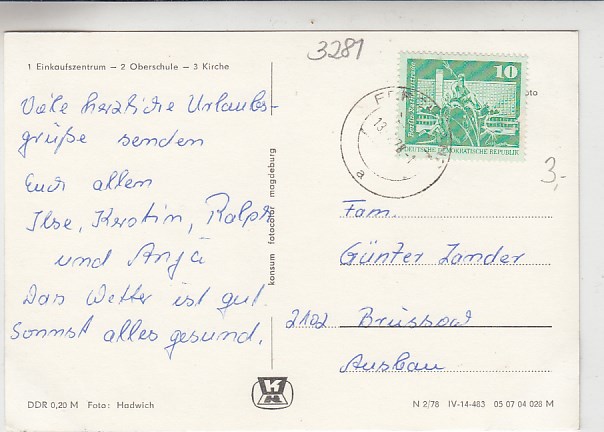 3281
1 Einkaufszentrum – 2 Oberschule – 3 Kirche
Viele herzliche Urlaubs-
grüße senden
Euch allen
Ilse, Kerstin, Ralph
und Anja
Das Wetter ist gut.
Sonnst alles gesund.
konsum fotocolor magdeburg
10
Berlin, Rathausstraße
DEUTSCHE DEMOKRATISCHE REPUBLIK
oto
13
a
3,-
Fam.
Günter Zander
2102 Brüssow
Ausbau
DDR 0,20 M Foto: Hadwich
N 2/78 IV-14-483 05 07 04 028 M